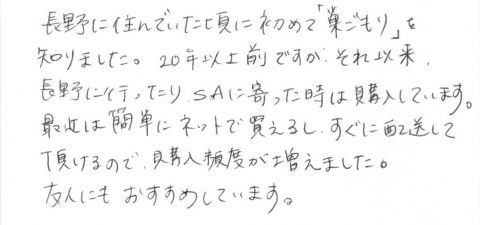 長野に住んでいた頃に初めて「巣ごもり」を
知りました。20年以上前ですが、それ以来、
長野に行ったり、SAに寄った時は購入しています。
最近は簡単にネットで買えるし、すぐに配送して
頂けるので、購入頻度が増えました。
友人にもおすすめしています。